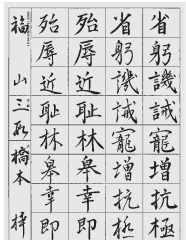 省躬譏誡寵增抗極
省躬譏誡寵增抗極
殆辱近耻林皋幸即
殆辱近耻林皋幸即
福山三 橋本梓